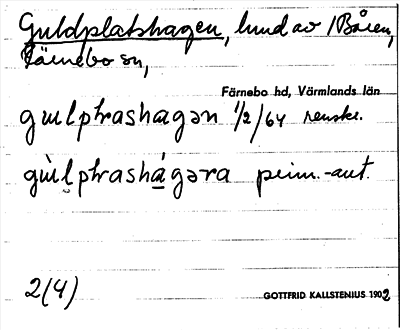 Guldplatshagen, lund av /Båren,
Färnebo sn,
Färnebo hd, Värmlands län
gulphrashagən 1/2/64 renskr.
gùlphrashágəra prim.-ant.
2(4)
GOTTFRID KALLSTENIUS 1902